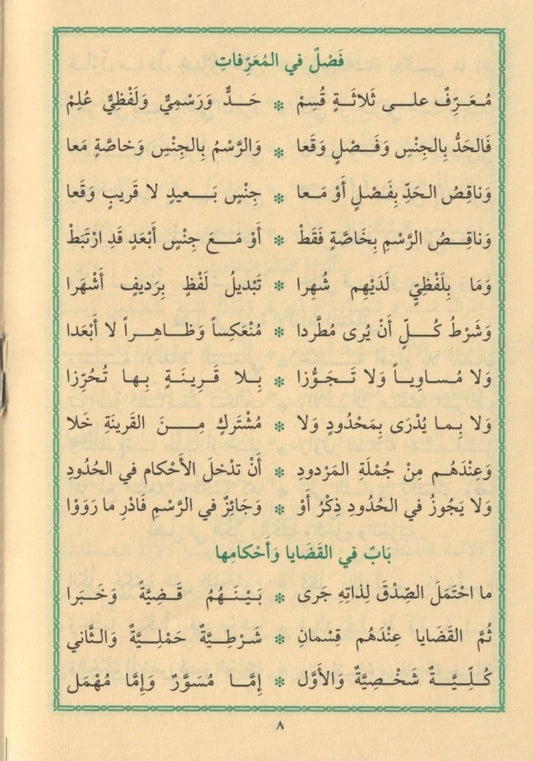 فَصْلٌ في المُعَرِّفاتِ
مُعَرِّفٌ على ثَلاثَةٍ قُسِمْ * حَدٌّ وَرَسْمِيٌّ وَلَفْظِيٌّ عُلِمْ
فَالحَدُّ بِالجِنْسِ وَفَصْلٍ وَقَعا * وَالرَّسْمُ بِالجِنْسِ وَخاصَّةٍ مَعا
وَناقِصُ الحَدِّ بِفَصْلٍ أَوْ مَعا * جِنْسٍ بَعيدٍ لا قَريبٍ وَقَعا
وَناقِصُ الرَّسْمِ بِخَاصَّةٍ فَقَطْ * أَوْ مَعَ جِنْسٍ أَبْعَدٍ قَدِ ارْتَبَطْ
وَمَا بِلَفْظِيٍّ لَدَيْهِم شُهِرا * تَبْديلُ لَفْظٍ بِرَديفٍ أَشْهَرا
وَشَرْطُ كُلٍّ أَنْ يُرى مُطَّرِدا * مُنْعَكِساً وَظاهِراً لا أَبْعَدا
وَلا مُساوِياً وَلا تَجَوُّزا * بِلا قَرينَةٍ بها تُحُرِّزا
وَلا بِما يُدْرَى بِمَحْدُودٍ وَلا * مُشْتَرَكٍ مِنَ القَرينَةِ خَلا
وَعِنْدَهُم مِنْ جُمْلَةِ المَرْدودِ * أَنْ تدْخلَ الأَحْكام في الحُدُودِ
وَلا يَجُوزُ في الحُدُودِ ذِكْرُ أَوْ * وَجَائِزٌ في الرَّسْمِ فَادْرِ ما رَوَوْا
بَابٌ في القَضَايا وَأَحْكامِها
ما احْتَمَلَ الصِّدْقَ لِذاتِهِ جَرى * بَيْنَهُمُ قَضِيَّةً وَخَبَرا
ثُمَّ القَضَايا عِنْدَهُم قِسْمانِ * شَرْطِيَّةٌ حَمْلِيَّةٌ وَالثَّاني
كُلِّيَّةٌ شَخْصِيَّةٌ وَالأَوَّل * إِمَّا مُسَوَّرٌ وَإِمَّا مُهْمَل
٨